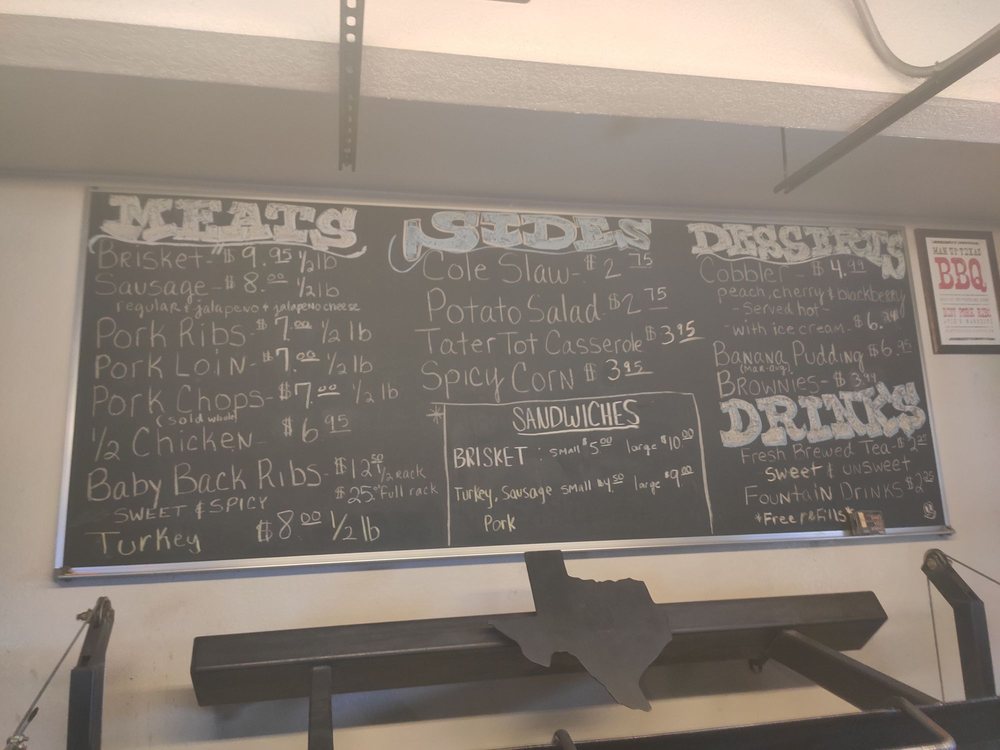 MEATS
Brisket - $9.95 1/2 lb
Sausage - $8.00 1/2 lb
regular + jalapeno + jalapeno cheese
Pork Ribs $7.00 1/2 lb
Pork Loin - $7.00 1/2 lb
Pork Chops - $7.00 1/2 lb
(sold whole)
1/2 Chicken - $6.95
Baby Back Ribs - $12.50 1/2 rack
SWEET & SPICY $25.00 Full rack
Turkey $8.00 1/2 lb
SIDES
Cole Slaw - $2.75
Potato Salad $2.75
Tater Tot Casserole $3.95
Spicy Corn $3.95
* SANDWICHES
BRISKET: small $5.00 large $10.00
Turkey, Sausage small $4.50 large $9.00
Pork
DESSERTS
Cobbler - $4.95
peach, cherry & blackberry
- Served hot -
- with ice cream - $6.
Banana Pudding $6.95
Brownies - $3.
DRINKS
Fresh Brewed Tea - $2.25
Sweet & unsweet
Fountain Drinks $2.25
*Free refills*
BBQ